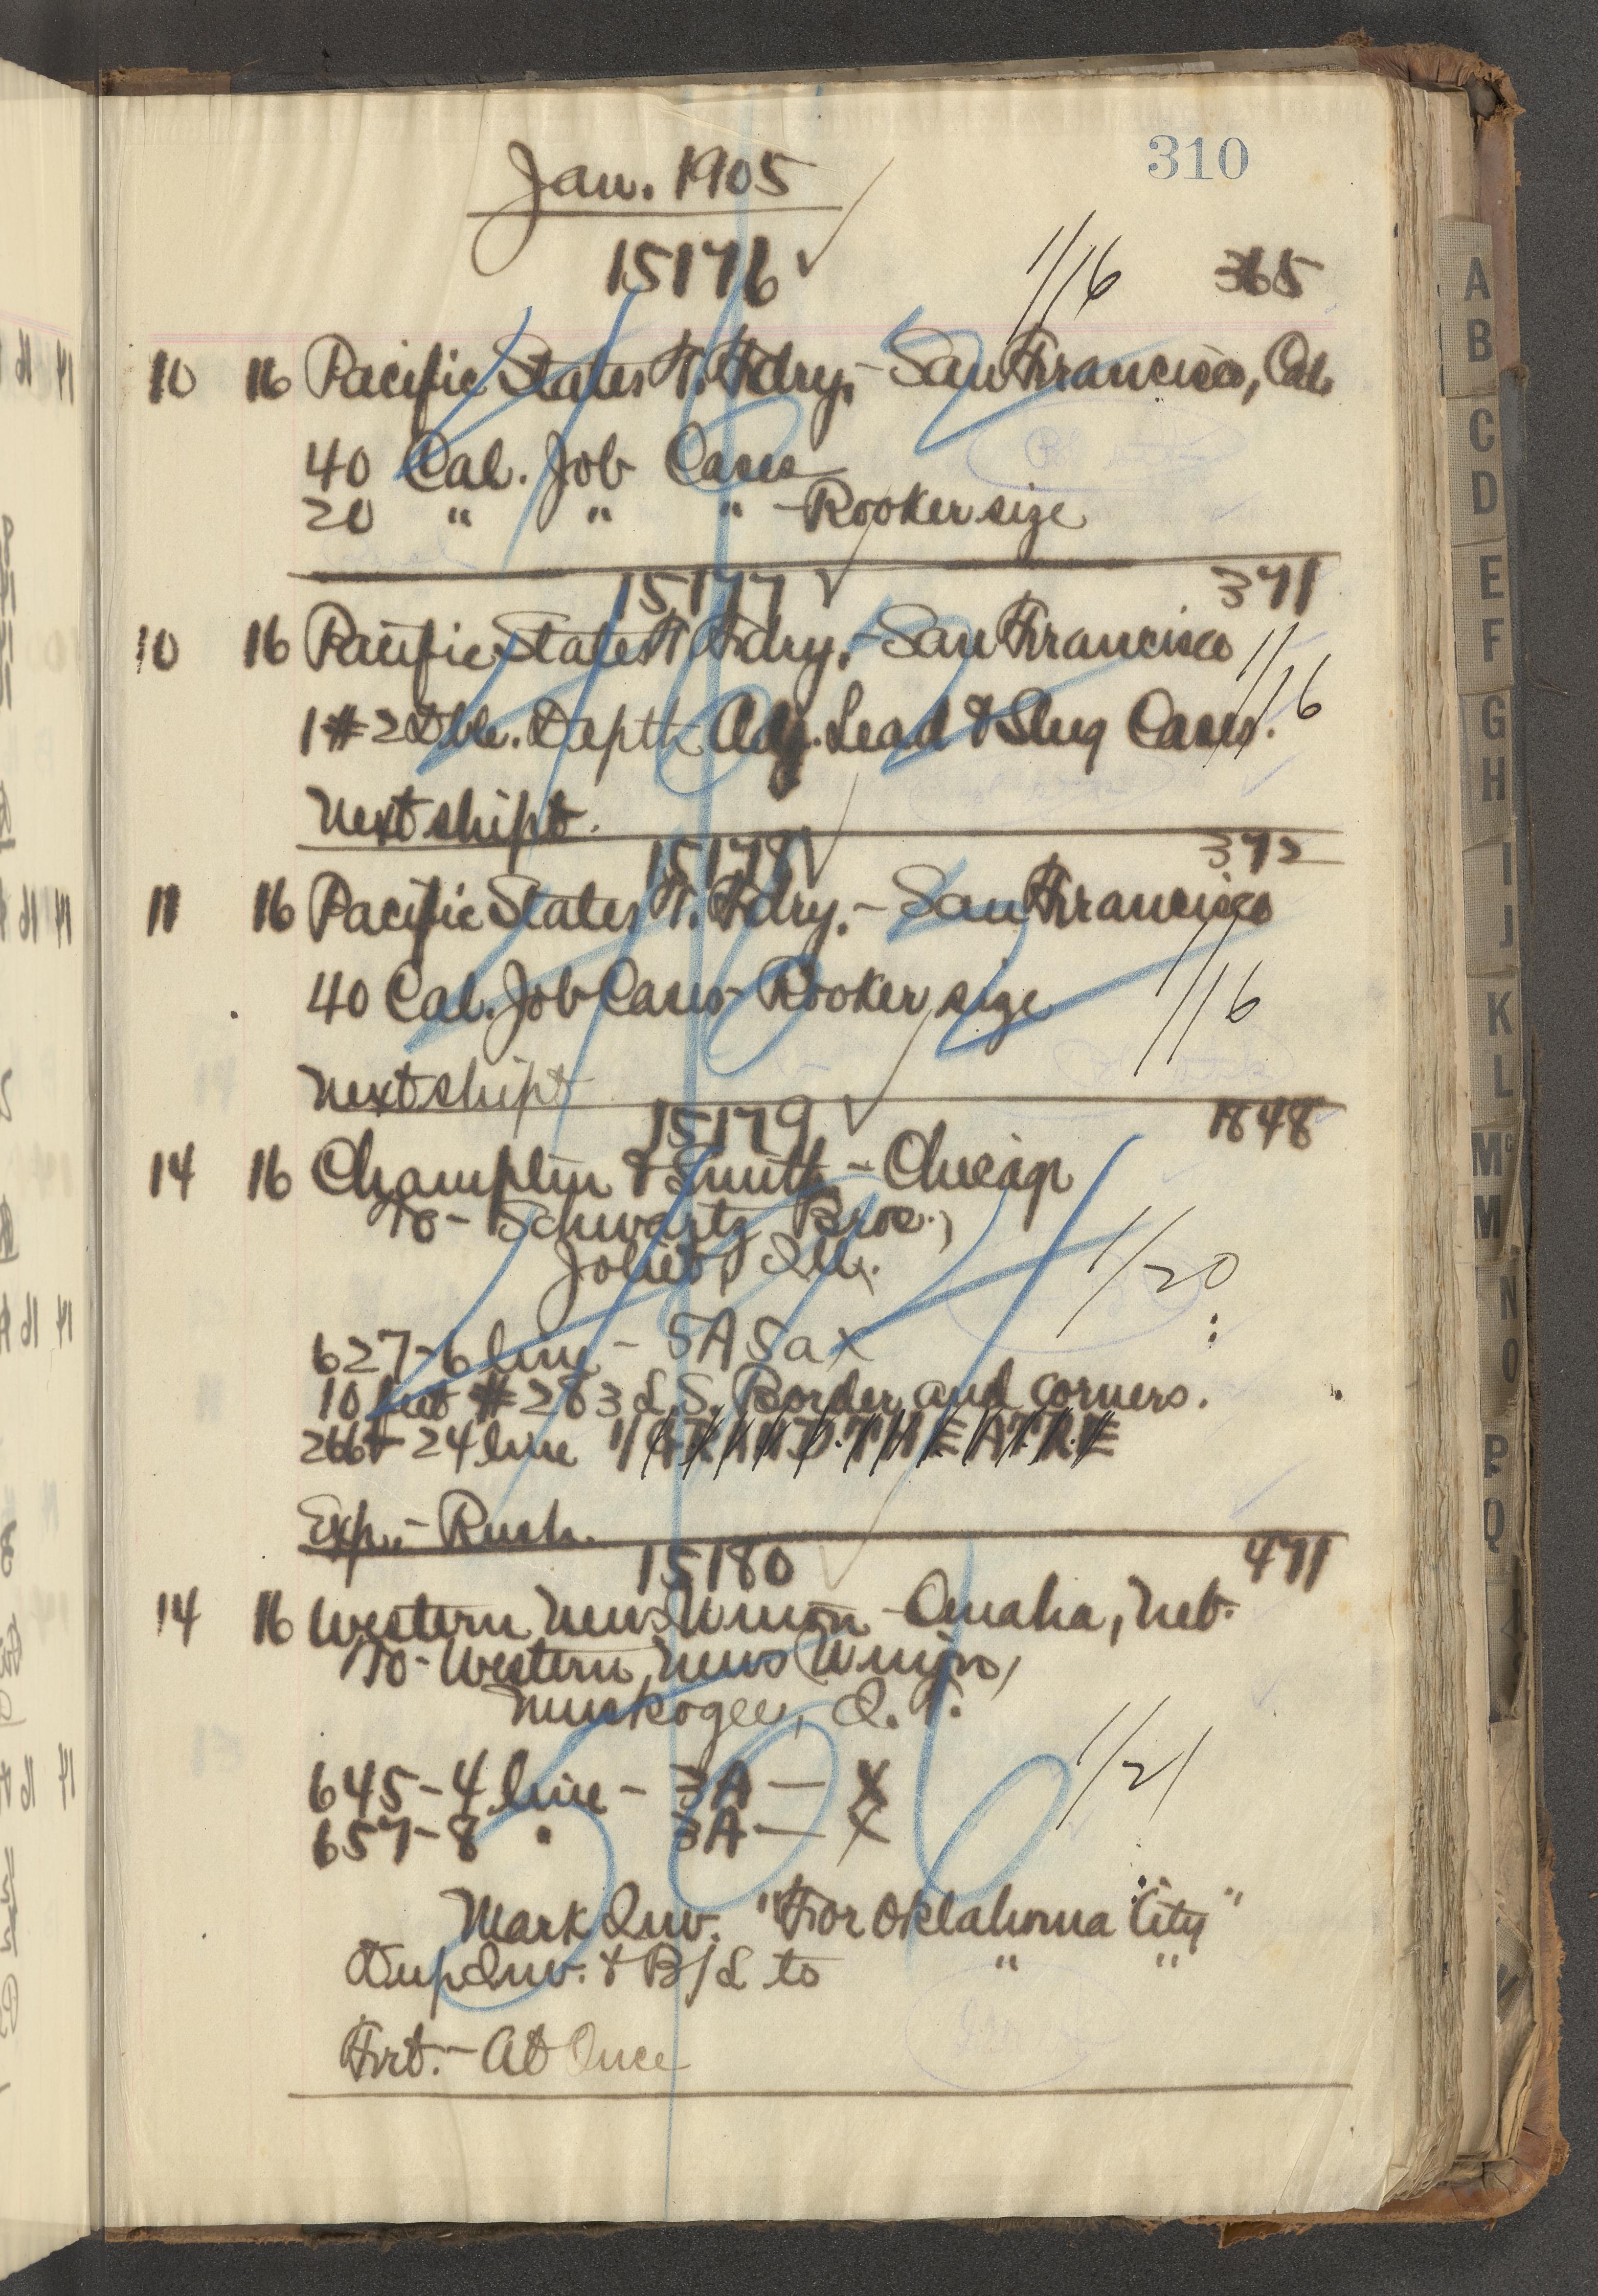 310
Jan. 1905
15176 ✓ 1/16 365
10 16 Pacific States T. Fdry. - San Francisco, Cal.
40 Cal. Job Cases
20 " " " - Rooker size
15177 ✓ 371
10 16 Pacific States T. Fdry. - San Francisco 1/16
1 #2 Dble. Depth Adj. Lead & Slug Cases.
Next shipt.
15178 ✓ 372
11 16 Pacific States T. Fdry. - San Francisco
40 Cal. Job Cases - Rooker size 1/16
Next shipt
15179 ✓ 1848
14 16 Champlin & Smith - Chicago
To - Schwartz Bros.,
Joliet, Ill. 1/20
627-6 line - 5A 5a x
10 feet #283 L.S. Border and corners.
266-24 line 1/GRAND THEATRE
Exp. - Rush.
15180 ✓ 471
14 16 Western News Union - Omaha, Neb.
To - Western News Union,
Muskogee, I.T.
645-4 line - 3A — X 1/21
657-8 " 3A — X
Mark Inv. "For Oklahoma City"
Dup Inv. & B/L to " "
Frt. - At Once
A
B
C
D
E
F
G
H
I
J
K
L
Mc
M
N
O
P
Q